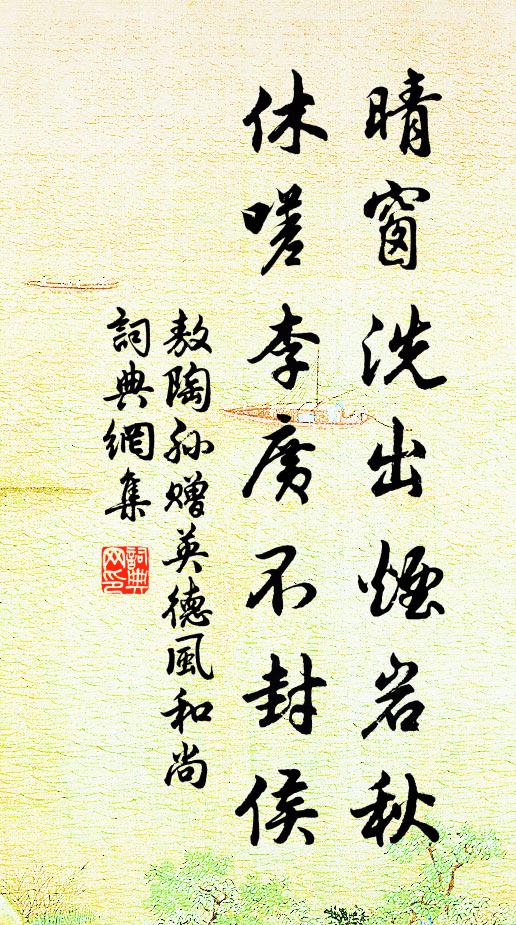 晴窗洗出煙岩秋
休嗟李廣不封侯
敖陶孫贈英德風和尚
詞典網集
詞典网印